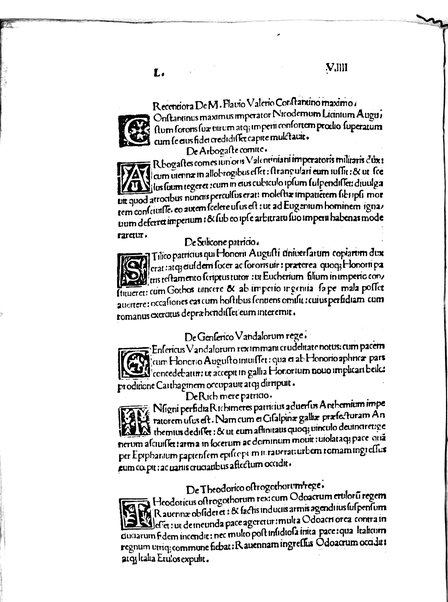 L. V.IIII
Recentiora De M. Flavio Valerio Constantino maximo.
COnstantinus maximus imperator Nicodemum Licinium Augu
stum sororis suæ virum atq; imperii consortem prœlio superatum
cum se eius fidei credidisset capite mulctauit.
De Arbogaste comite.
ARbogastes comes iunioris Valentiniani imperatoris militaris dux:
cum utennæ in allobrogibus esset: strangulari eum iussit: & ut sce
lus suum tegeret: cum in eius cubiculo ipsum suspendisset: diuulga
uit quod atrocibus nuncis perculsus erat: molestiæ impatiētem sibi ipsi mor
tem consciuisse. eo autem scelere usus est: ut ad Eugenium hominem igna
uum deferret imperium: & sub eo ipse arbitratu suo imperii habenas mode
raretur.
De Stilicone patricio.
STilico patricius qui Honorii Augusti uniuersarum copiarum dux
erat: atq; eiusdem socer ac sororis uir: præterea quoq; Honorii pa
tris testamento scriptus tutor: ut Eucherium filium in imperio con
stitueret: cum Gothos uincere & ab imperio ingenia sæpe mala posset
auertere: occasiones eas cum hostibus sentiens omisit: cuius perfidiam cum
romanus exercitus deprehendisset eum interemit.
De Genserico Vandalorum rege.
GEnsericus Vandalorum rex immani crudelitate notus: cum pacem
cum Honorio Augusto iniuisset: qua ei ab Honorio aphricæ pars
concedebatur: ut accepit in gallia Honorium nouo implicari bello:
proditione Carthaginem occupauit atq; diripuit.
De Richimere patricio.
INsigni perfidia Richimeres patricius aduersus Anthemium impe
ratorem usus est. Nam cum ei Cisalpinæ galliæ præfecturam An
themius dedisset: & ut eum affinitatis quoq; uinculo deuinciret ge
nerum asciuisset: arma in socerum ac dominum mouit: uiolataq; pace quā
per Epiphanium papiensem episcopum iurauerat: urbem romam ingressus
eum cœpit: ac uariis cruciatibus affectum occidit.
De Theodorico ostrogothorum rege.
THeodoricus ostrogothorum rex: cum Odoacrum erulorū regem
Rauennæ obsideret: & factis induciis armis agendi ius suspensum
esset: ut de ineunda pace ageretur: multa Odoacri orea contra in
duciarum fidem incendit: nec multo post insidiosa inita pace: qua Italicum
regnum utriq; commune fiebat: Rauennam ingressus Odoacrum occidit:
atq; Italia Erulos expulit.